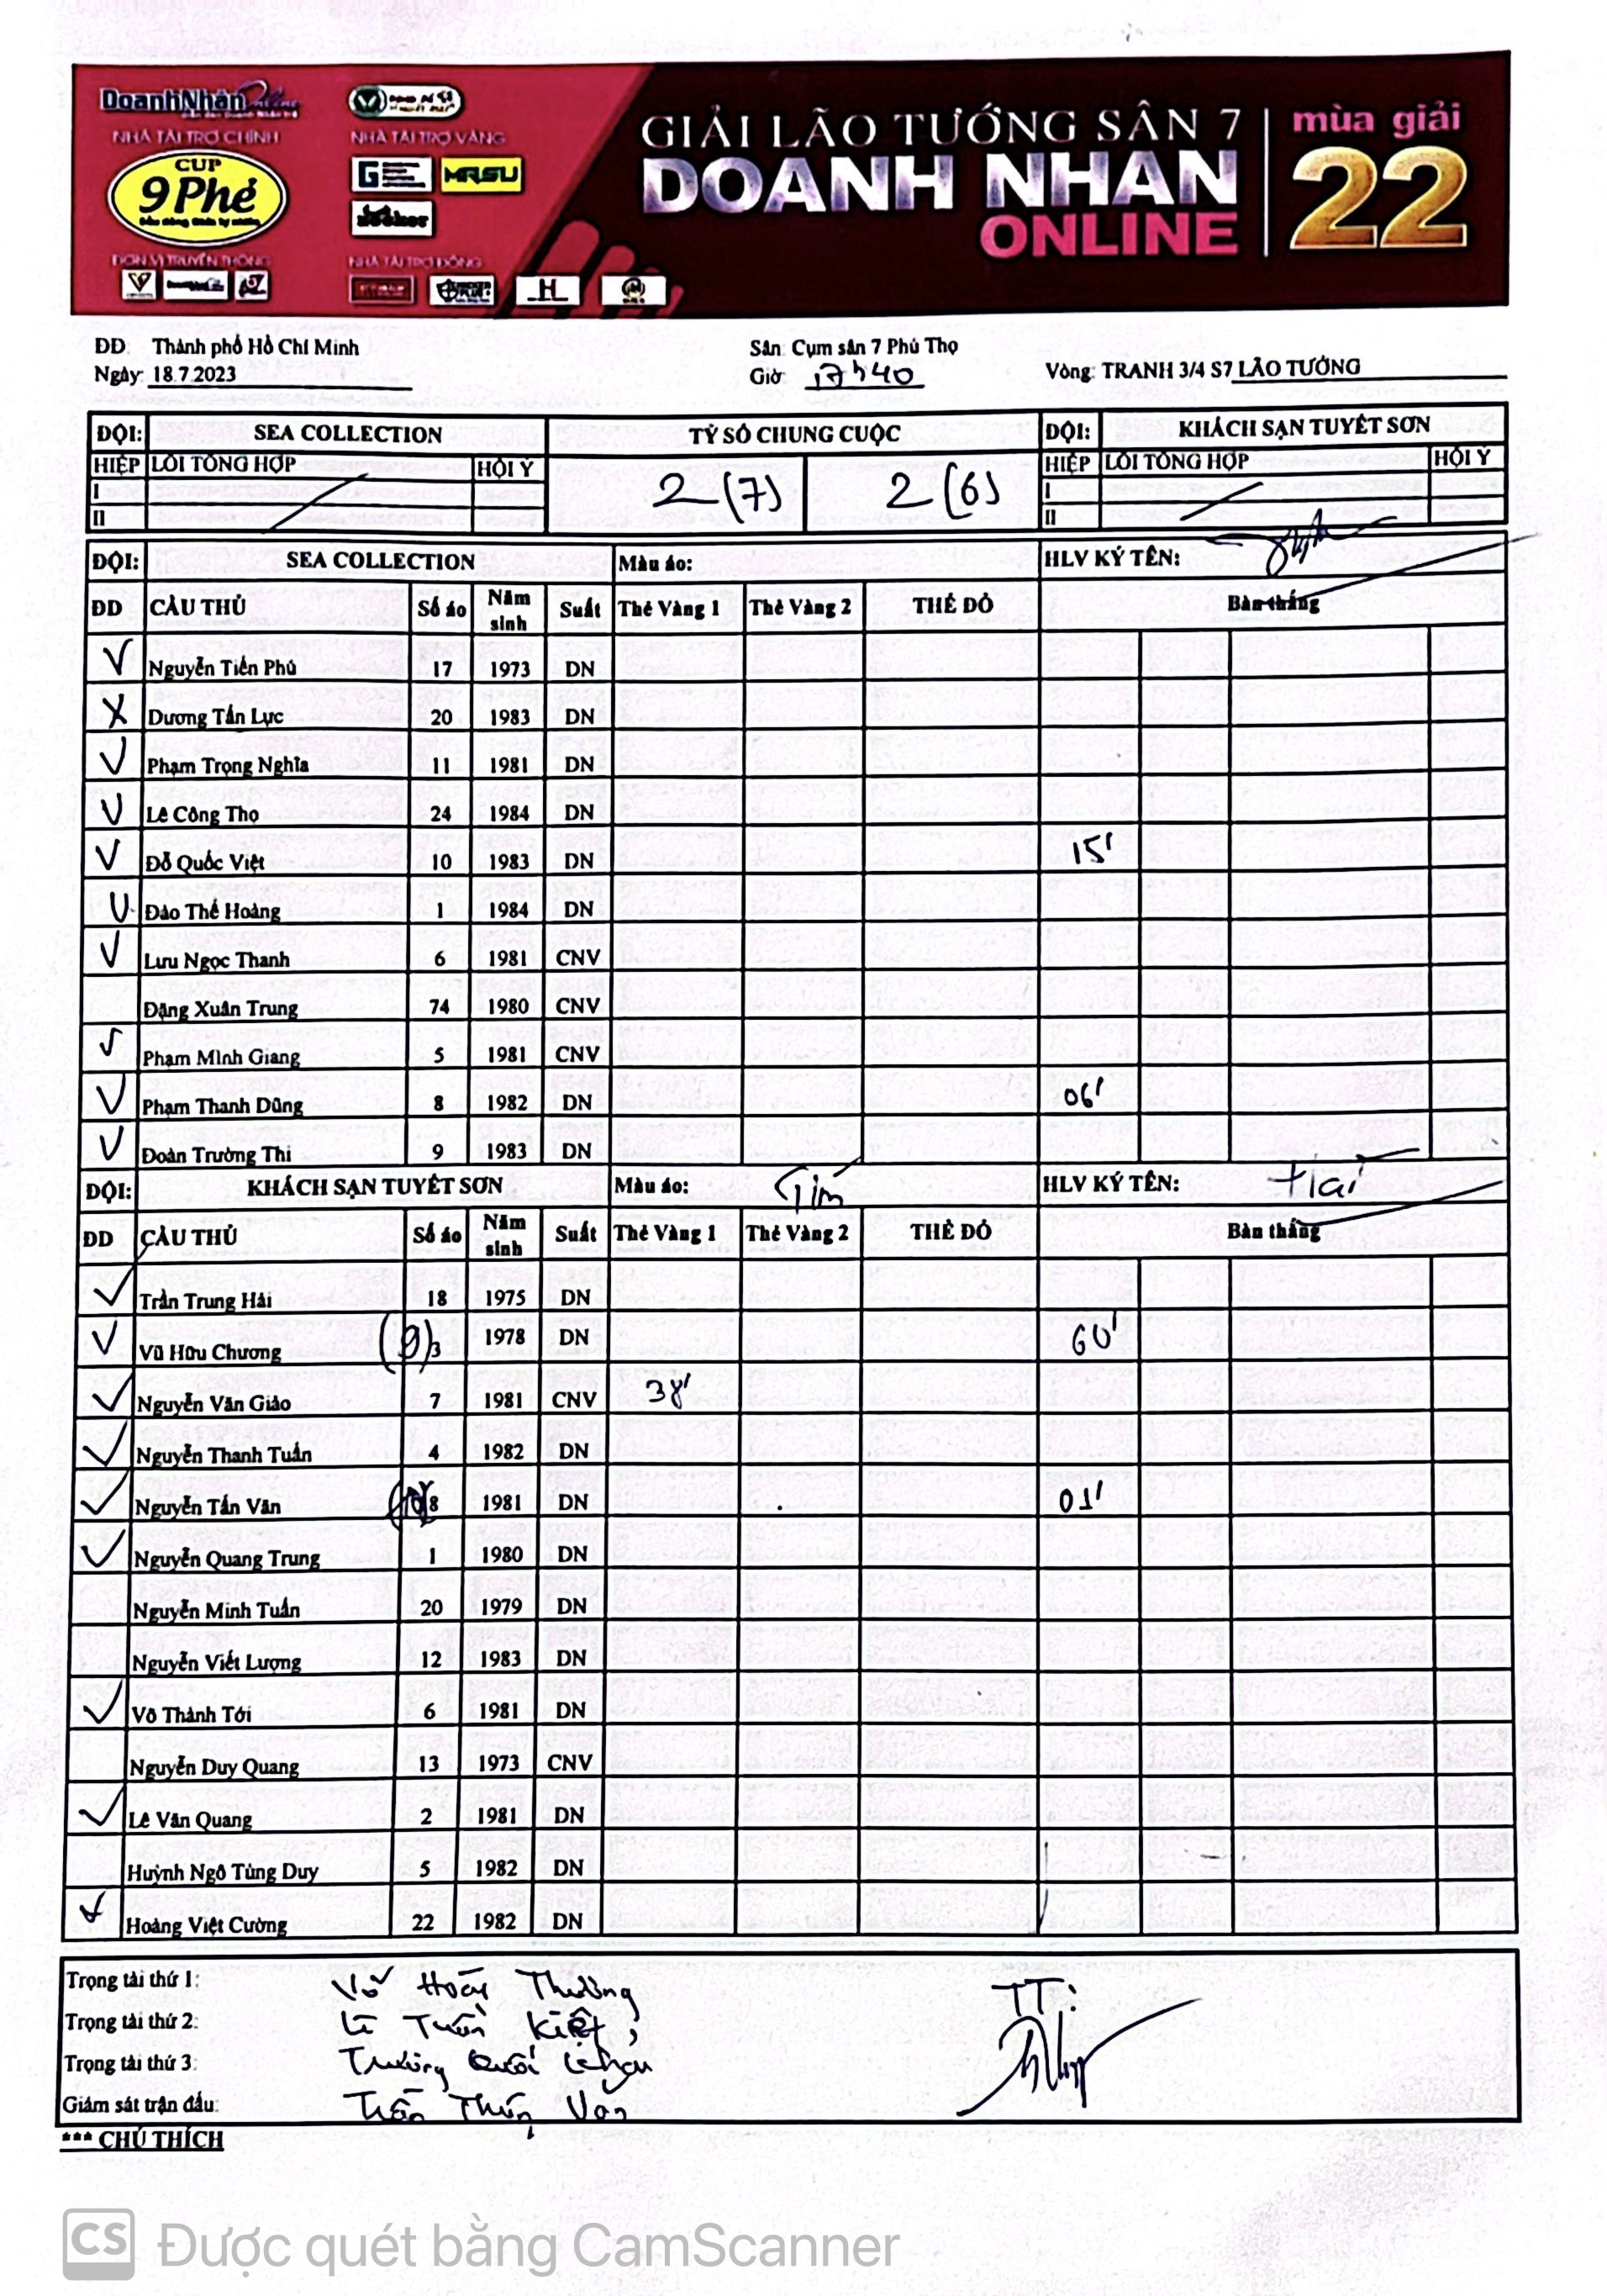 DoanhNhân Online
NHÀ TÀI TRỢ CHÍNH
NHÀ TÀI TRỢ VÀNG
CUP
9 Phẻ
MRSU
ĐƠN VỊ TRUYỀN THÔNG
NHÀ TÀI TRỢ ĐỒNG
GIẢI LÃO TƯỚNG SÂN 7
DOANH NHAN
ONLINE
mùa giải
22
ĐĐ Thành phố Hồ Chí Minh
Sân: Cụm sân 7 Phú Thọ
Ngày: 18.7.2023
Giờ 17h40
Vòng: TRANH 3/4 S7 LÃO TƯỚNG
ĐỘI: SEA COLLECTION TỶ SỐ CHUNG CUỘC ĐỘI: KHÁCH SẠN TUYẾT SƠN
HIỆP LỖI TỔNG HỢP HỘI Ý 2 (7) 2 (6) HIỆP LỖI TỔNG HỢP HỘI Ý
I I
II II
ĐỘI: SEA COLLECTION Màu áo: HLV KÝ TÊN:
ĐD CẦU THỦ Số áo Năm sinh Suất Thẻ Vàng 1 Thẻ Vàng 2 THẺ ĐỎ Bàn thắng
V Nguyễn Tiến Phú 17 1973 DN
X Dương Tấn Lực 20 1983 DN
V Phạm Trọng Nghĩa 11 1981 DN
V Lê Công Thọ 24 1984 DN
V Đỗ Quốc Việt 10 1983 DN 15'
V Đào Thế Hoàng 1 1984 DN
V Lưu Ngọc Thanh 6 1981 CNV
Đặng Xuân Trung 74 1980 CNV
V Phạm Minh Giang 5 1981 CNV
V Phạm Thanh Dũng 8 1982 DN 06'
V Đoàn Trường Thi 9 1983 DN
ĐỘI: KHÁCH SẠN TUYẾT SƠN Màu áo: Tím HLV KÝ TÊN: Hai
ĐD CẦU THỦ Số áo Năm sinh Suất Thẻ Vàng 1 Thẻ Vàng 2 THẺ ĐỎ Bàn thắng
V Trần Trung Hải 18 1975 DN
V Vũ Hữu Chương (9) 3 1978 DN 60'
V Nguyễn Văn Giảo 7 1981 CNV 38'
V Nguyễn Thanh Tuấn 4 1982 DN
V Nguyễn Tấn Văn 8 1981 DN 01'
V Nguyễn Quang Trung 1 1980 DN
Nguyễn Minh Tuấn 20 1979 DN
Nguyễn Viết Lượng 12 1983 DN
V Võ Thành Tới 6 1981 DN
Nguyễn Duy Quang 13 1973 CNV
V Lê Văn Quang 2 1981 DN
Huỳnh Ngô Tùng Duy 5 1982 DN
V Hoàng Việt Cường 22 1982 DN
Trọng tài thứ 1: Võ Hoài Thương TT:
Trọng tài thứ 2: Lê Tuấn Kiệt
Trọng tài thứ 3: Trương Quốc
Giám sát trận đấu: Trần Vân
*** CHÚ THÍCH
CS Được quét bằng CamScanner